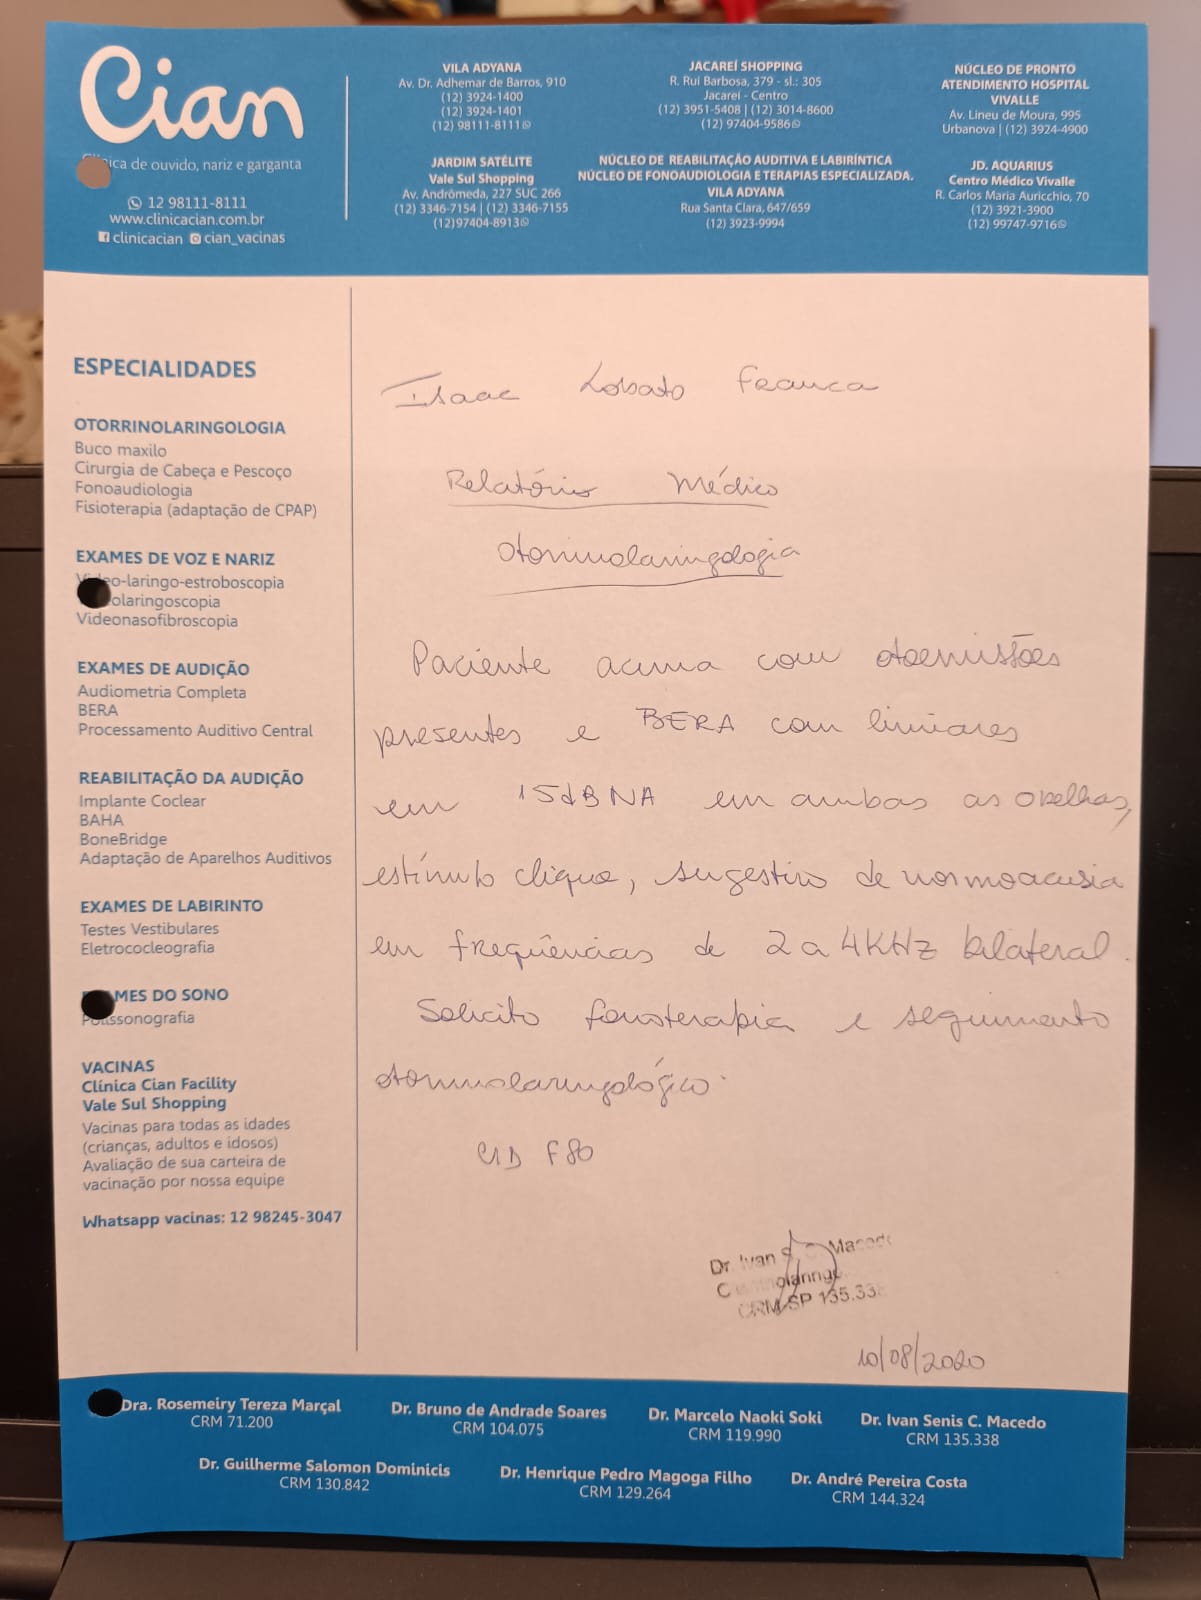 Cian
Clínica de ouvido, nariz e garganta
12 98111-8111
www.clinicacian.com.br
clinicacian cian_vacinas
VILA ADYANA
Av. Dr. Adhemar de Barros, 910
(12) 3924-1400
(12) 3924-1401
(12) 98111-8111
JARDIM SATÉLITE
Vale Sul Shopping
Av. Andrômeda, 227 SUC 266
(12) 3346-7154 | (12) 3346-7155
(12)97404-8913
JACAREÍ SHOPPING
R. Rui Barbosa, 379 - sl.: 305
Jacareí - Centro
(12) 3951-5408 | (12) 3014-8600
(12) 97404-9586
NÚCLEO DE REABILITAÇÃO AUDITIVA E LABIRÍNTICA
NÚCLEO DE FONOAUDIOLOGIA E TERAPIAS ESPECIALIZADA.
VILA ADYANA
Rua Santa Clara, 647/659
(12) 3923-9994
NÚCLEO DE PRONTO
ATENDIMENTO HOSPITAL
VIVALLE
Av. Lineu de Moura, 995
Urbanova | (12) 3924-4900
JD. AQUARIUS
Centro Médico Vivalle
R. Carlos Maria Auricchio, 70
(12) 3921-3900
(12) 99747-9716
ESPECIALIDADES
OTORRINOLARINGOLOGIA
Buco maxilo
Cirurgia de Cabeça e Pescoço
Fonoaudiologia
Fisioterapia (adaptação de CPAP)
EXAMES DE VOZ E NARIZ
Video-laringo-estroboscopia
olaringoscopia
Videonasofibroscopia
EXAMES DE AUDIÇÃO
Audiometria Completa
BERA
Processamento Auditivo Central
REABILITAÇÃO DA AUDIÇÃO
Implante Coclear
BAHA
BoneBridge
Adaptação de Aparelhos Auditivos
EXAMES DE LABIRINTO
Testes Vestibulares
Eletrococleografia
EXAMES DO SONO
Polissonografia
VACINAS
Clínica Cian Facility
Vale Sul Shopping
Vacinas para todas as idades
(crianças, adultos e idosos)
Avaliação de sua carteira de
vacinação por nossa equipe
Whatsapp vacinas: 12 98245-3047
Isaac Lobato Franca
Relatório Médico
Otorrinolaringologia
Paciente acima com otoemissões
presentes e BERA com limiares
em 15dBNA em ambas as orelhas,
estímulo clique, sugestivo de normoacusia
em freqüências de 2 a 4KHz bilateral.
Solicito fonoterapia e seguimento
otorrinolaringológico.
CID F80
Dr. Ivan S. C. Macedo
CRM/SP 135.338
10/08/2020
Dra. Rosemeiry Tereza Marçal
CRM 71.200
Dr. Bruno de Andrade Soares
CRM 104.075
Dr. Marcelo Naoki Soki
CRM 119.990
Dr. Ivan Senis C. Macedo
CRM 135.338
Dr. Guilherme Salomon Dominicis
CRM 130.842
Dr. Henrique Pedro Magoga Filho
CRM 129.264
Dr. André Pereira Costa
CRM 144.324